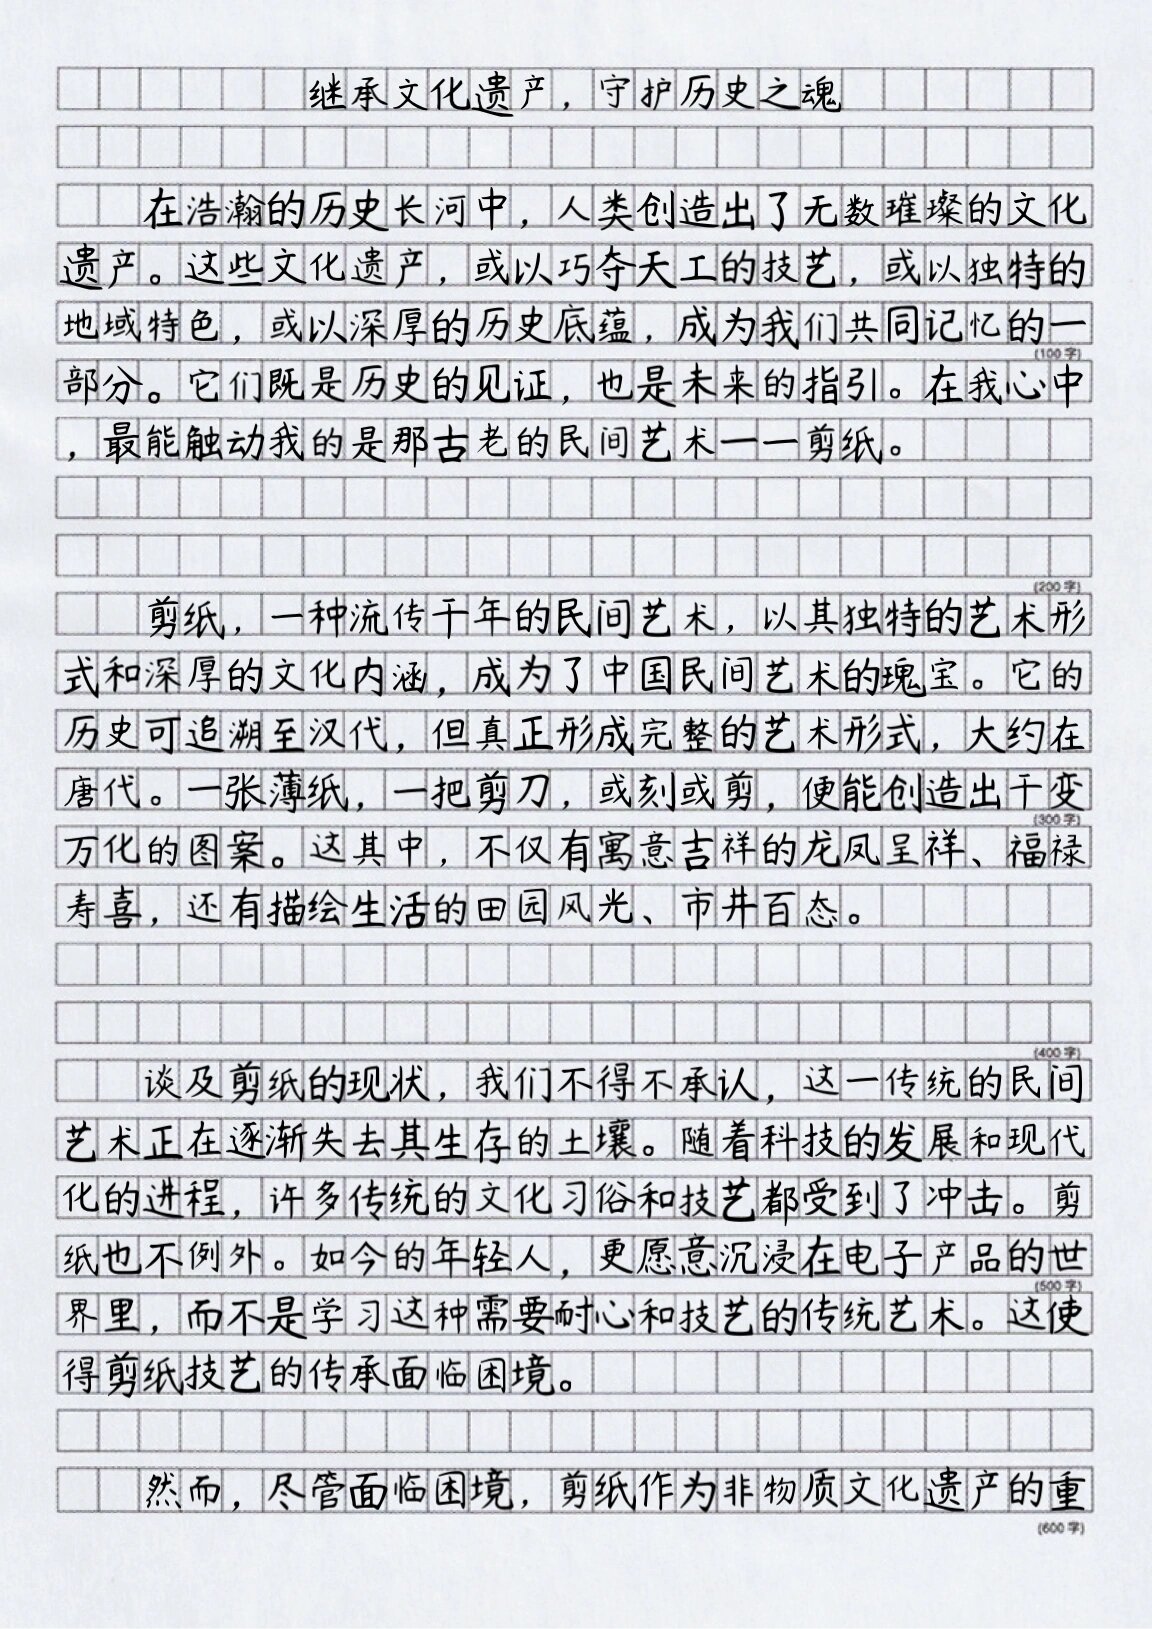 继承文化遗产，守护历史之魂
在浩瀚的历史长河中，人类创造出了无数璀璨的文化
遗产。这些文化遗产，或以巧夺天工的技艺，或以独特的
地域特色，或以深厚的历史底蕴，成为我们共同记忆的一
(100字)
部分。它们既是历史的见证，也是未来的指引。在我心中
，最能触动我的是那古老的民间艺术——剪纸。
(200字)
剪纸，一种流传千年的民间艺术，以其独特的艺术形
式和深厚的文化内涵，成为了中国民间艺术的瑰宝。它的
历史可追溯至汉代，但真正形成完整的艺术形式，大约在
唐代。一张薄纸，一把剪刀，或刻或剪，便能创造出千变
(300字)
万化的图案。这其中，不仅有寓意吉祥的龙凤呈祥、福禄
寿喜，还有描绘生活的田园风光、市井百态。
(400字)
谈及剪纸的现状，我们不得不承认，这一传统的民间
艺术正在逐渐失去其生存的土壤。随着科技的发展和现代
化的进程，许多传统的文化习俗和技艺都受到了冲击。剪
纸也不例外。如今的年轻人，更愿意沉浸在电子产品的世
(500字)
界里，而不是学习这种需要耐心和技艺的传统艺术。这使
得剪纸技艺的传承面临困境。
然而，尽管面临困境，剪纸作为非物质文化遗产的重
(600字)